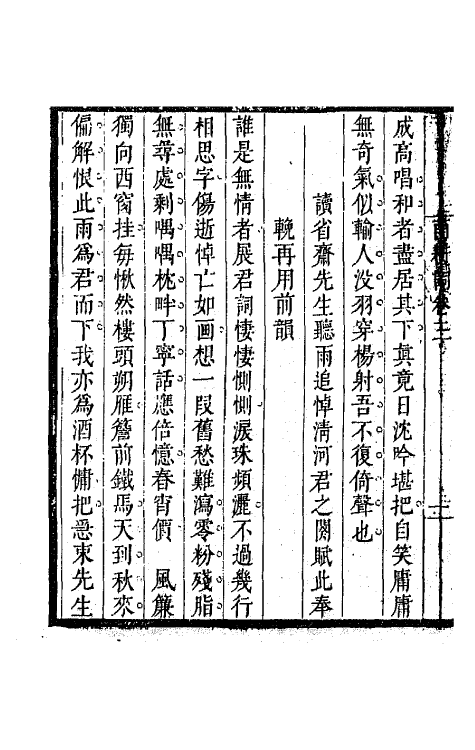 成高唱和者盡居其下眞竟日沈吟堪把自笑庸庸
無奇氣似輸人没羽穿楊射吾不復倚聲也
讀省齋先生聽雨追悼淸河君之闋賦此奉
輓再用前韻
誰是無情者展君詞悽悽惻惻淚珠頻灑不過幾行
相思字傷逝悼亡如画想一段舊愁難瀉零粉殘脂
無尋處剩喁喁枕畔丁寧話應倍憶春宵價　風簾
獨向西窗挂每愀然樓頭朔雁簷前鐵馬天到秋來
偏解恨此雨爲君而下我亦爲酒杯慵把惡東先生